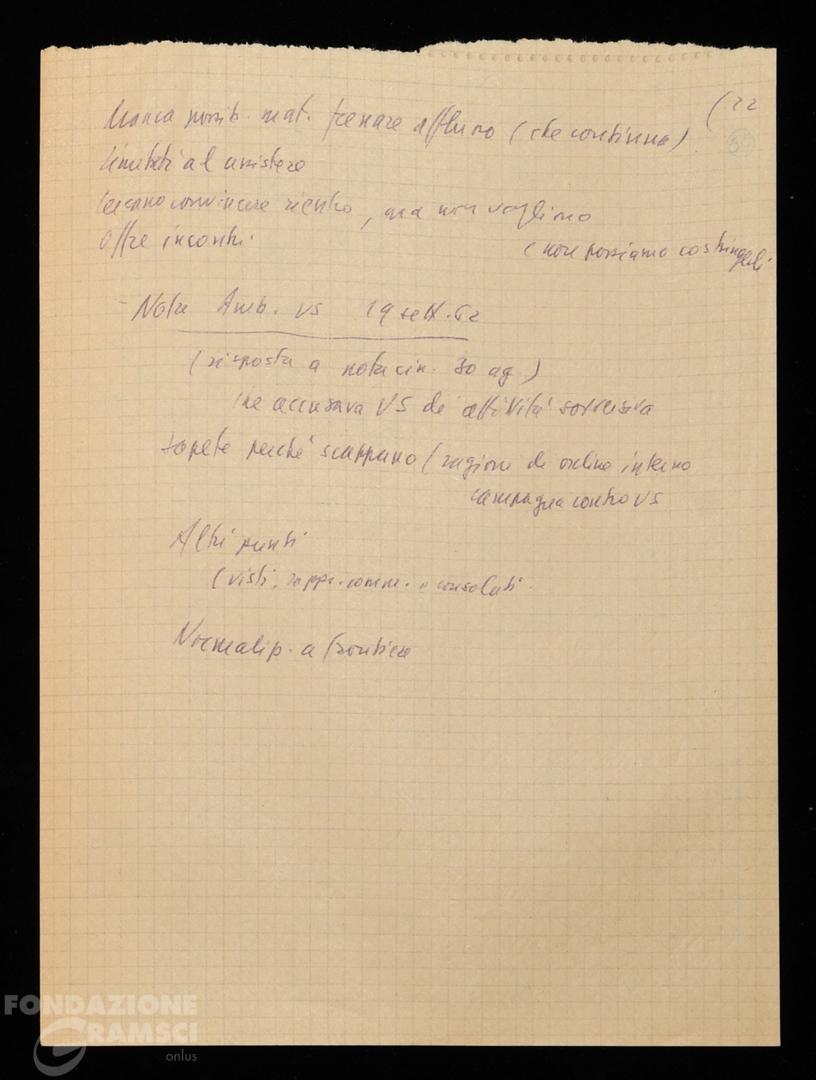 (22
Manca possib. mat. frenare afflusso (che continua)
Limitati al assistere
Cercano convincere rientro, ma non vogliono
(non possiamo costringerli
Offre incontri.
- Nota Amb. VS 19 sett. 62
(risposta a nota cin. 30 ag.)
che accusava VS di attività sovversiva
sapete perché scappano (ragioni di ordine interno
campagna contro VS
Altri punti
(visti, rapp. comm. e consolati
Normalizz. a frontiera
FONDAZIONE
GRAMSCI
onlus